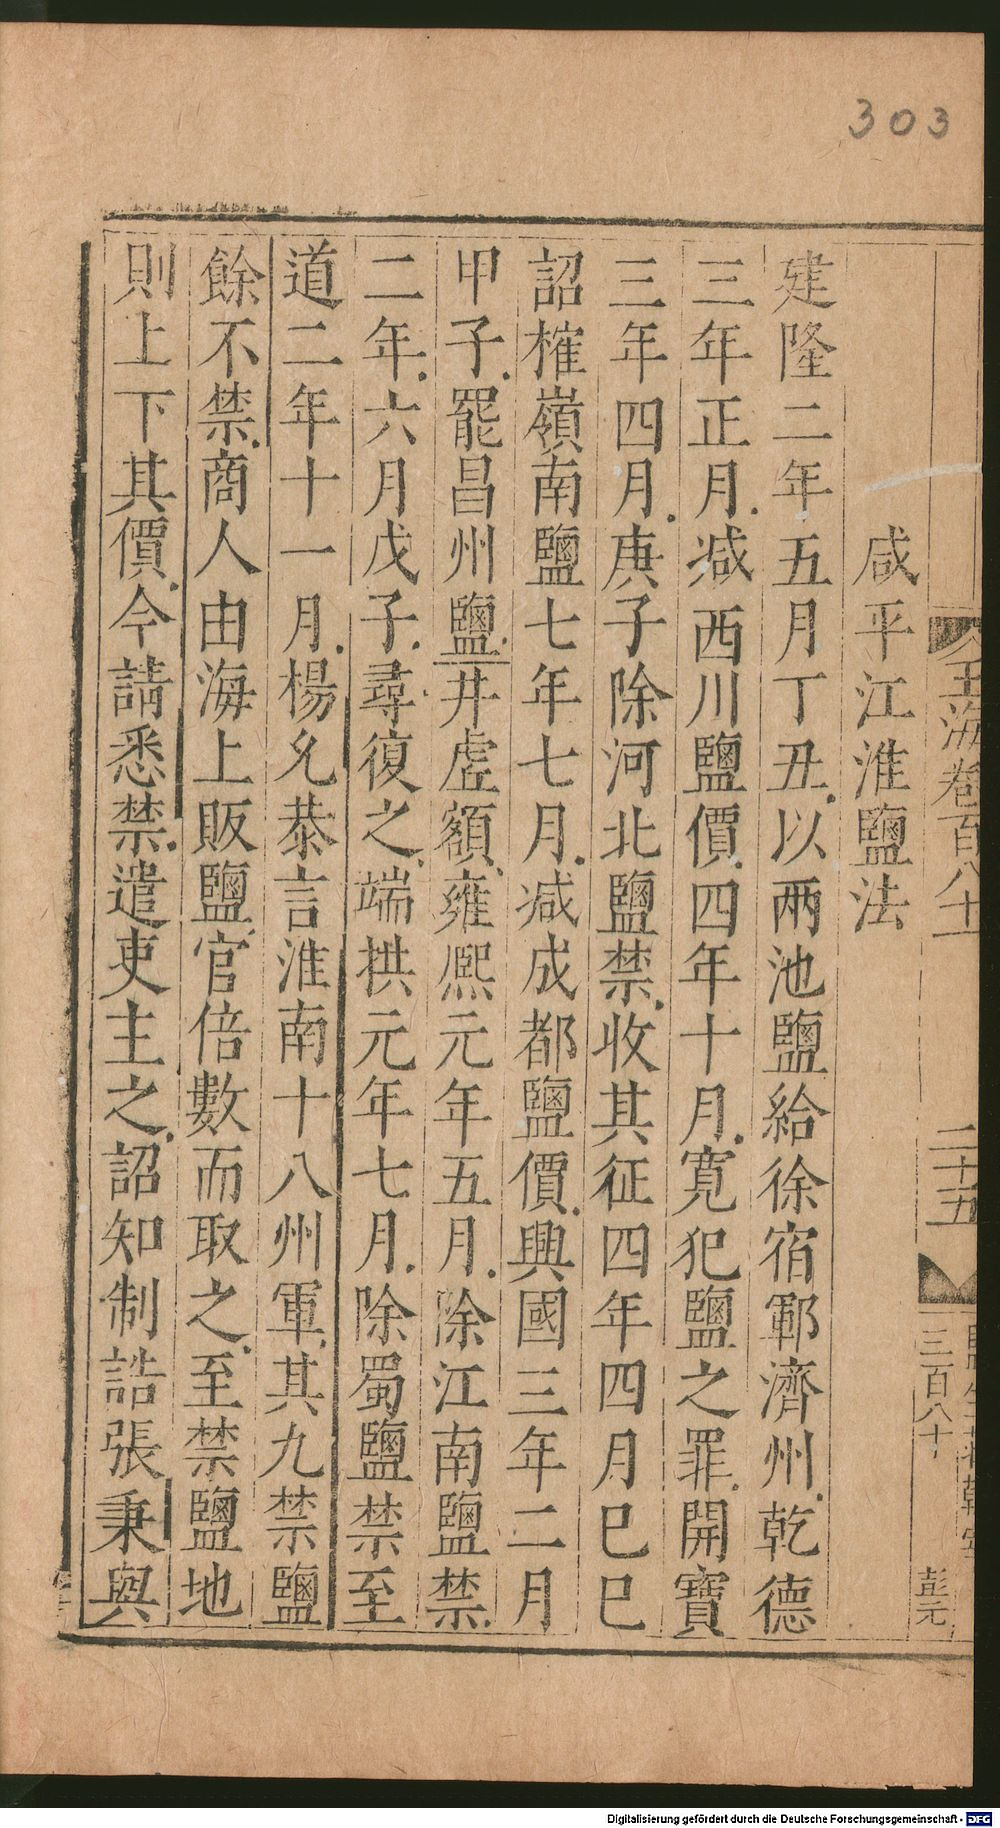 303
玉海卷百八十一
二十五
三百八十
彭元
咸平江淮鹽法
建隆二年五月丁丑以兩池鹽給徐宿鄆濟州乾德
三年正月減西川鹽價四年十月寬犯鹽之罪開寶
三年四月庚子除河北鹽禁收其征四年四月巳巳
詔榷嶺南鹽七年七月減成都鹽價興國三年二月
甲子罷昌州鹽井虛額雍熙元年五月除江南鹽禁
二年六月戊子尋復之端拱元年七月除蜀鹽禁至
道二年十一月楊允恭言淮南十八州軍其九禁鹽
餘不禁商人由海上販鹽官倍數而取之至禁鹽地
則上下其價今請悉禁遣吏主之詔知制誥張秉與
Digitalisierung gefördert durch die Deutsche Forschungsgemeinschaft - DFG